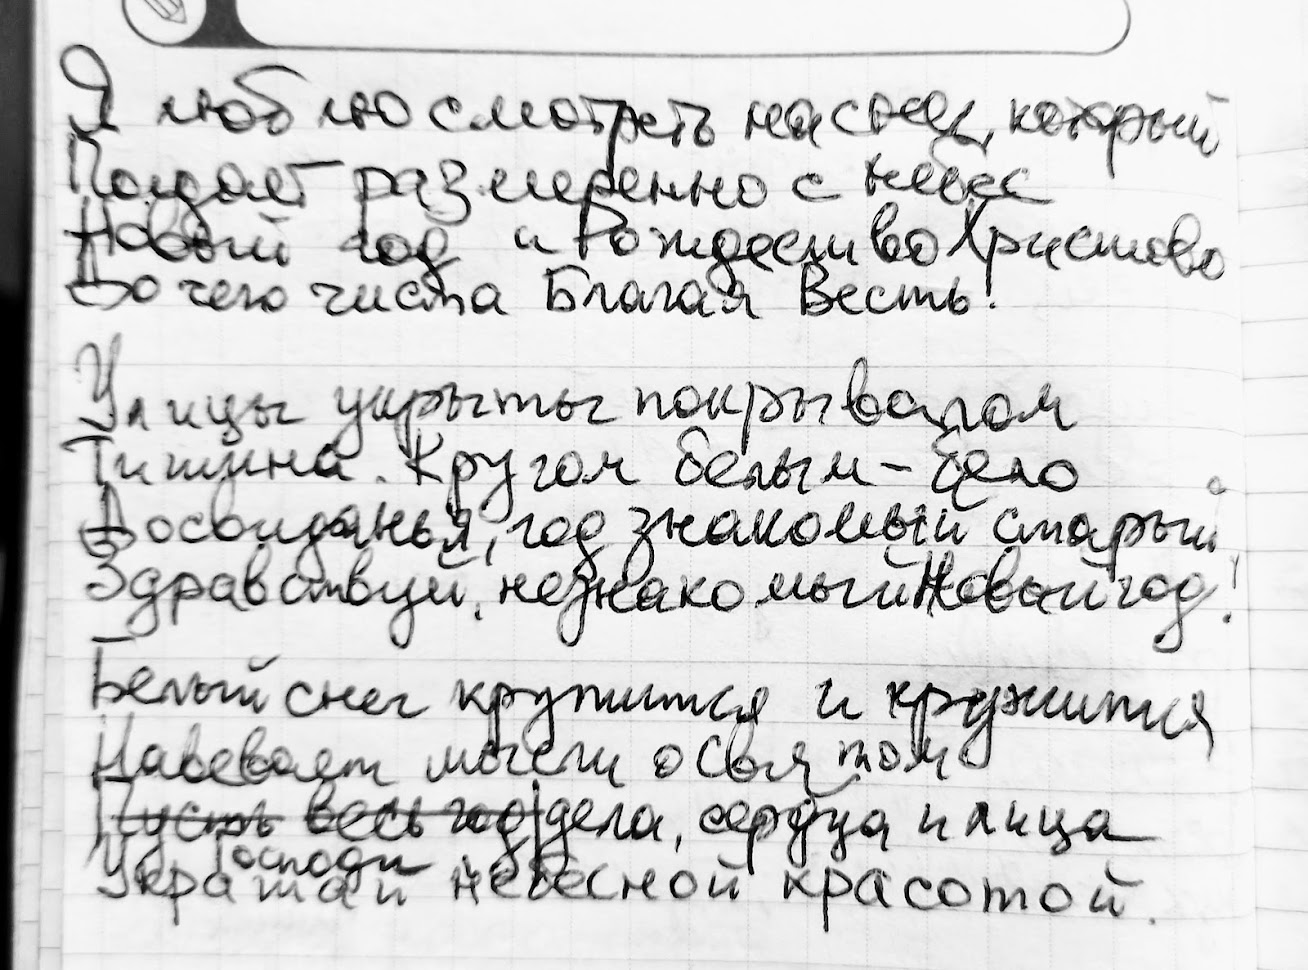 Я люблю смотреть на снег, который
Падает размеренно с небес
Новый год и Рождество Христово
До чего чиста Благая Весть!
Улицы укрыты покрывалом
Тишина. Кругом белым-бело
Досвиданья, год знакомый старый
Здравствуй, незнакомый Новый год!
Белый снег крупится и кружится
Навевает мысли о Святом
Пусть весь год дела, сердца и лица
Господи
Украшай небесной красотой.